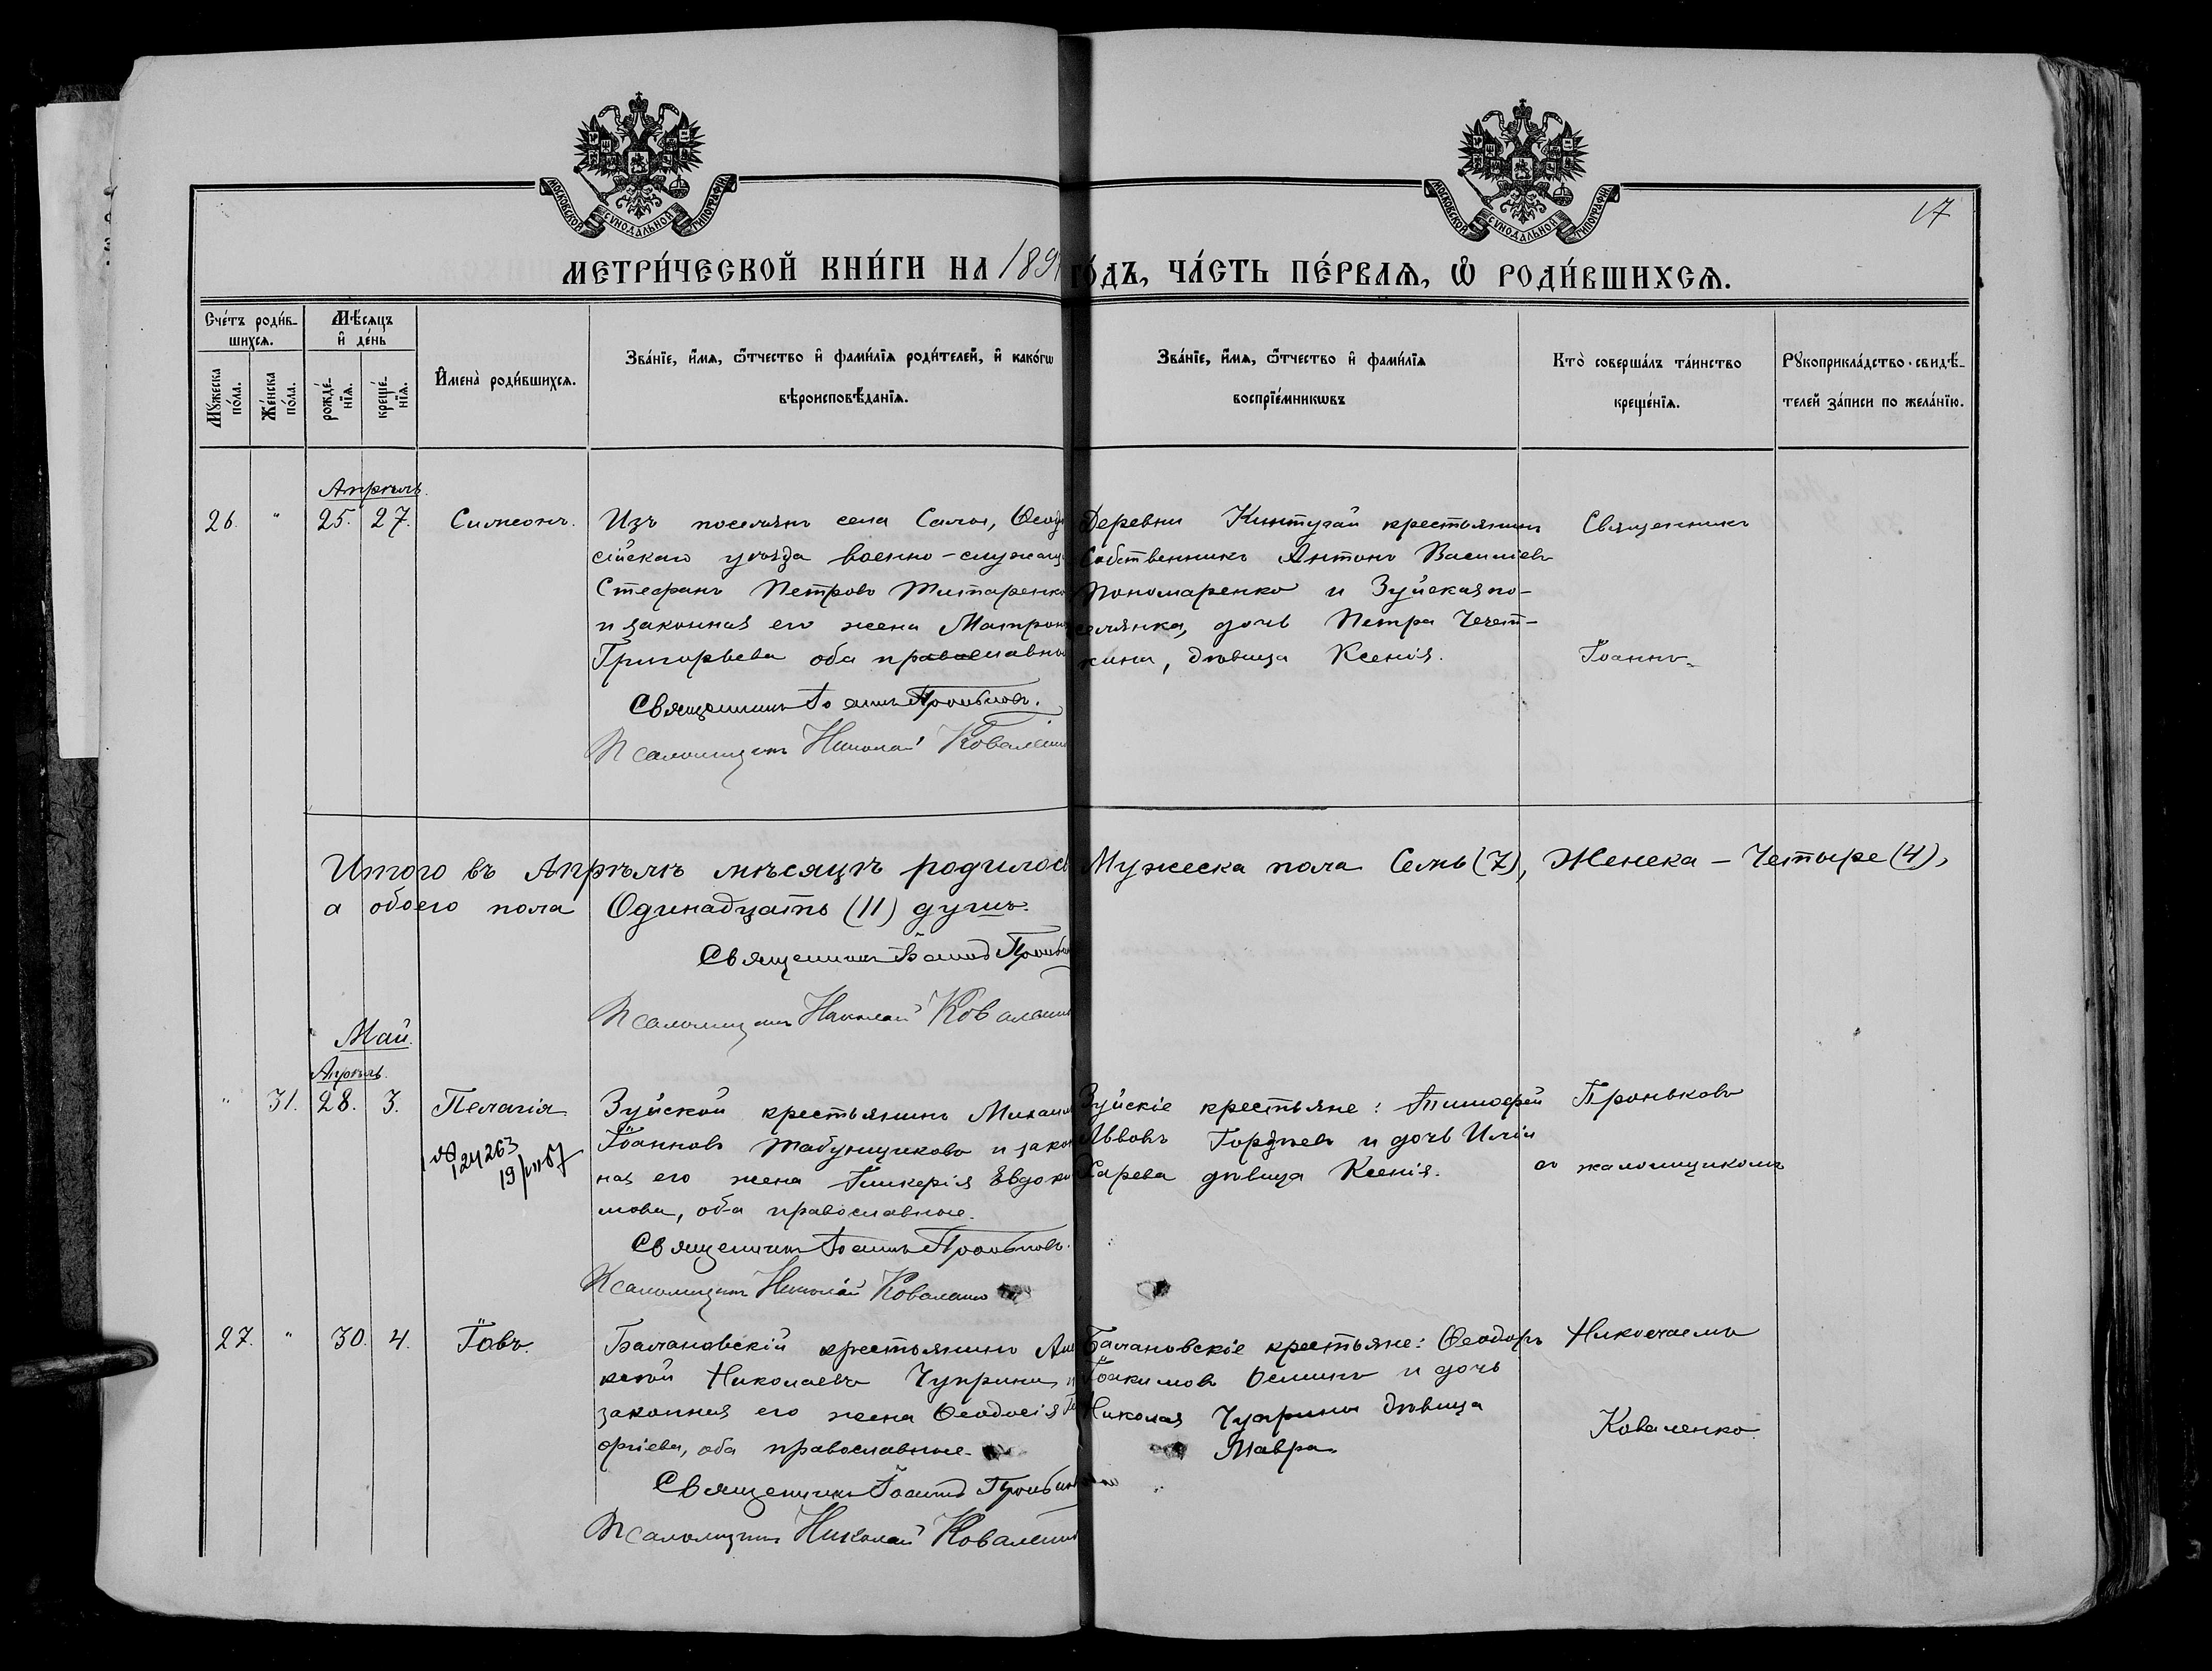 МОСКОВСКОЙ СУНОДАЛЬНОЙ ТИПОГРАФІИ
МОСКОВСКОЙ СУНОДАЛЬНОЙ ТИПОГРАФІИ
17
МЕТРИ́ЧЕСКОЙ КНИ́ГИ НА 189 ГО́ДЪ, ЧА́СТЬ ПЕ́РВАѦ, Ѡ РОДИ́ВШИХСѦ.
Сче́тъ роди́в-
шихсѧ.
Мꙋ́жеска
по́ла.
Же́нска
по́ла.
Мѣ́сѧцъ
и҆ де́нь
рожде́-
нїѧ.
креще́-
нїѧ.
И҆мена̀ роди́вшихсѧ.
Зва́нїе, и҆́мѧ, ѻ҆́тчество и҆ фами́лїѧ роди́телей, и҆ како́гѡ
вѣроисповѣ́данїѧ.
Зва́нїе, и҆́мѧ, ѻ҆́тчество и҆ фами́лїѧ
воспрїе́мникѡвъ
Кто̀ соверша́лъ та́инство
креще́нїѧ.
Рꙋкоприкла́дство свидѣ́-
телей за́писи по жела́нїю.
Апрѣль.
26. " 25. 27. Симеонъ.
Изъ поселянъ села Салы, Ѳеодо
сійскаго уѣзда военно-служащ
Стефанъ Петровъ Титаренко
и законная его жена Матрон
Григорьева оба православны
Священникъ Іоаннъ Проньковъ.
Псаломщикъ Николай Коваленко
Деревни Кинтугай крестьянинъ
Собственникъ Антонъ Василіевъ
Пономаренко и Зуйская по-
селянка, дочь Петра Чечет-
кина, дѣвица Ксенія.
Священникъ
Іоаннъ
Итого въ Апрѣлѣ мѣсяцѣ родилось Мужеска пола Семь (7), Женска - Четыре (4),
а обоего пола Одинадцать (11) душъ.
Священникъ Іоаннъ Проньк
Псаломщикъ Николай Коваленко
Май.
Апрѣль.
" 31. 28. 3. Пелагія
№ 124263
Зуйской крестьянинъ Михаил
Іоанновъ Табунщиковъ и закон
ная его жена Гликерія Евдоки
мова, оба православные.
Священникъ Іоаннъ Проньковъ.
Псаломщикъ Николай Коваленко
Зуйскіе крестьяне: Тимофей
Львовъ Гордѣевъ и дочь Иліи
Харева дѣвица Ксенія.
Проньковъ
съ псаломщикомъ
27. " 30. 4. Іовъ.
Балановскій крестьянинъ Але
ксѣй Николаевъ Чуприна и
законная его жена Ѳеодосія Ге
оргіева, оба православные.
Священникъ Іоаннъ Проньковъ
Псаломщикъ Николай Коваленко
Балановскіе крестьяне: Ѳеодоръ
Іоакимовъ Оеминъ и дочь
Николая Чуприны дѣвица
Мавра.
Николаемъ
Коваленко.